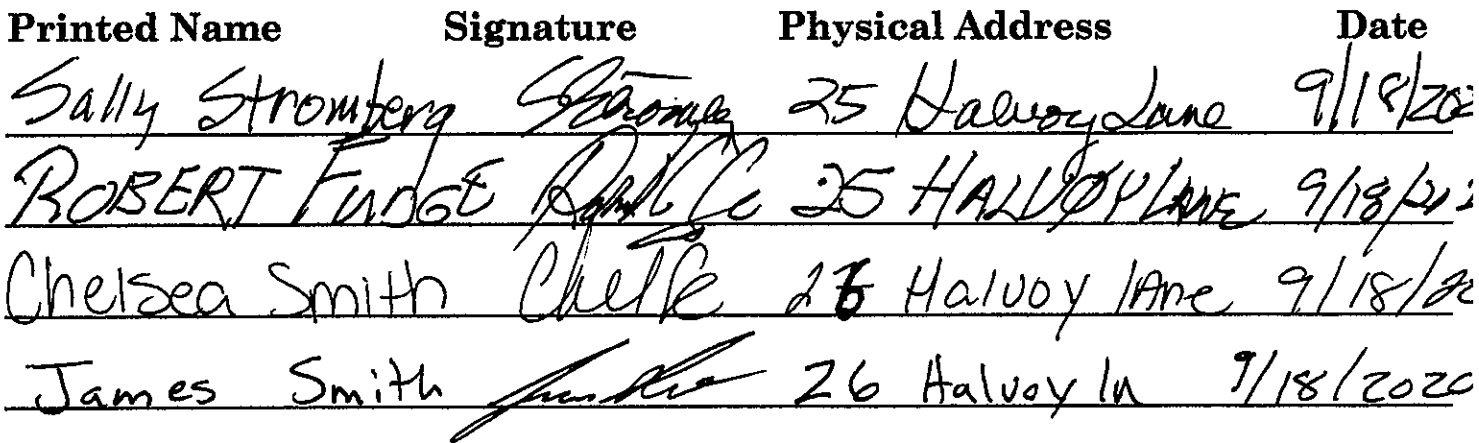 Printed Name Signature Physical Address Date
Sally Stromberg 25 Halvoy Lane 9/18/202
ROBERT FUDGE 25 HALVOY LANE 9/18/202
Chelsea Smith 26 Halvoy lAne 9/18/20
James Smith 26 Halvoy ln 9/18/2020